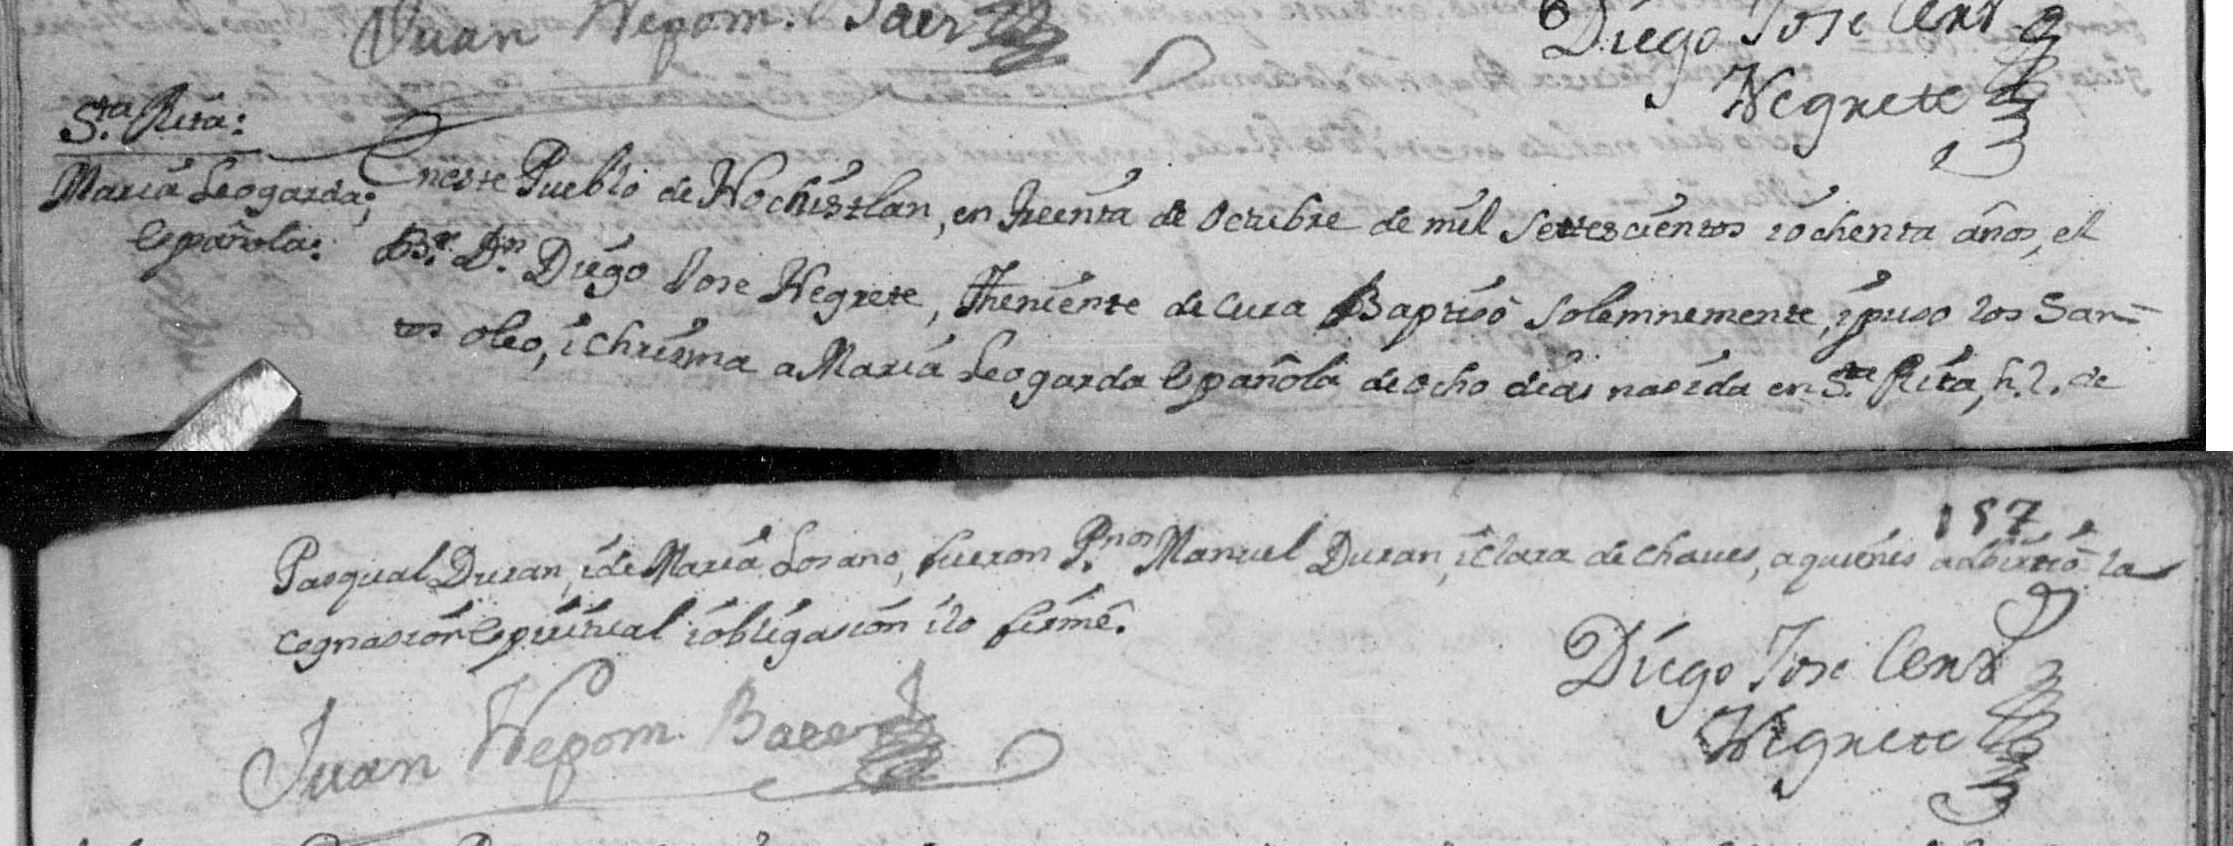 Juan Nepom. Baer
Diego Jose Cenr
Negrete
Sta. Rita:
Maria Leogarda;
española:
En este Pueblo de Nochistlan, en treenta de Octubre de mil settescientos iochenta años, el
Br. Dn. Diego Jose Negrete, Theniente de Cura Baptisó Solemnemente, ipuso los San-
tos oleo, i Chrisma a Maria Leogarda española de ocho dias nasida en Sta. Rita, h. l. de
157
Pasqual Duran, ide Maria Losano, fueron Pnos. Manuel Duran, iClara de Chaues, aquienes adbirtio la
cognasion espiritual iobligasion ilo firmé.
Diego Jose Cenr
Negrete
Juan Nepom. Baer